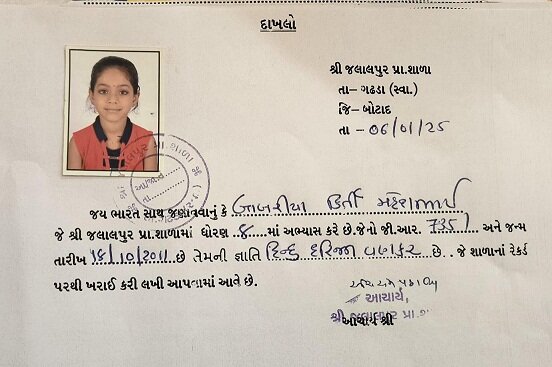 દાખલો
શ્રી જલાલપુર પ્રા.શાળા
તા- ગઢડા (સ્વા.)
જિ- બોટાદ
તા - 06/01/25
જય ભારત સાથ જણાવવાનું કે બાબરીયા કિર્તી મહેશભાઈ
જે શ્રી જલાલપુર પ્રા.શાળામાં ધોરણ ૮ માં અભ્યાસ કરે છે.જેનો જી.આર. 735 અને જન્મ
તારીખ 18/10/2011 છે તેમની જ્ઞાતિ હિન્દુ વણકર છે . જે શાળાનાં રેકર્ડ
પરથી ખરાઈ કરી લખી આપવામાં આવે છે.
આચાર્ય,
શ્રી જલાલપુર પ્રા.
આચાર્ય શ્રી